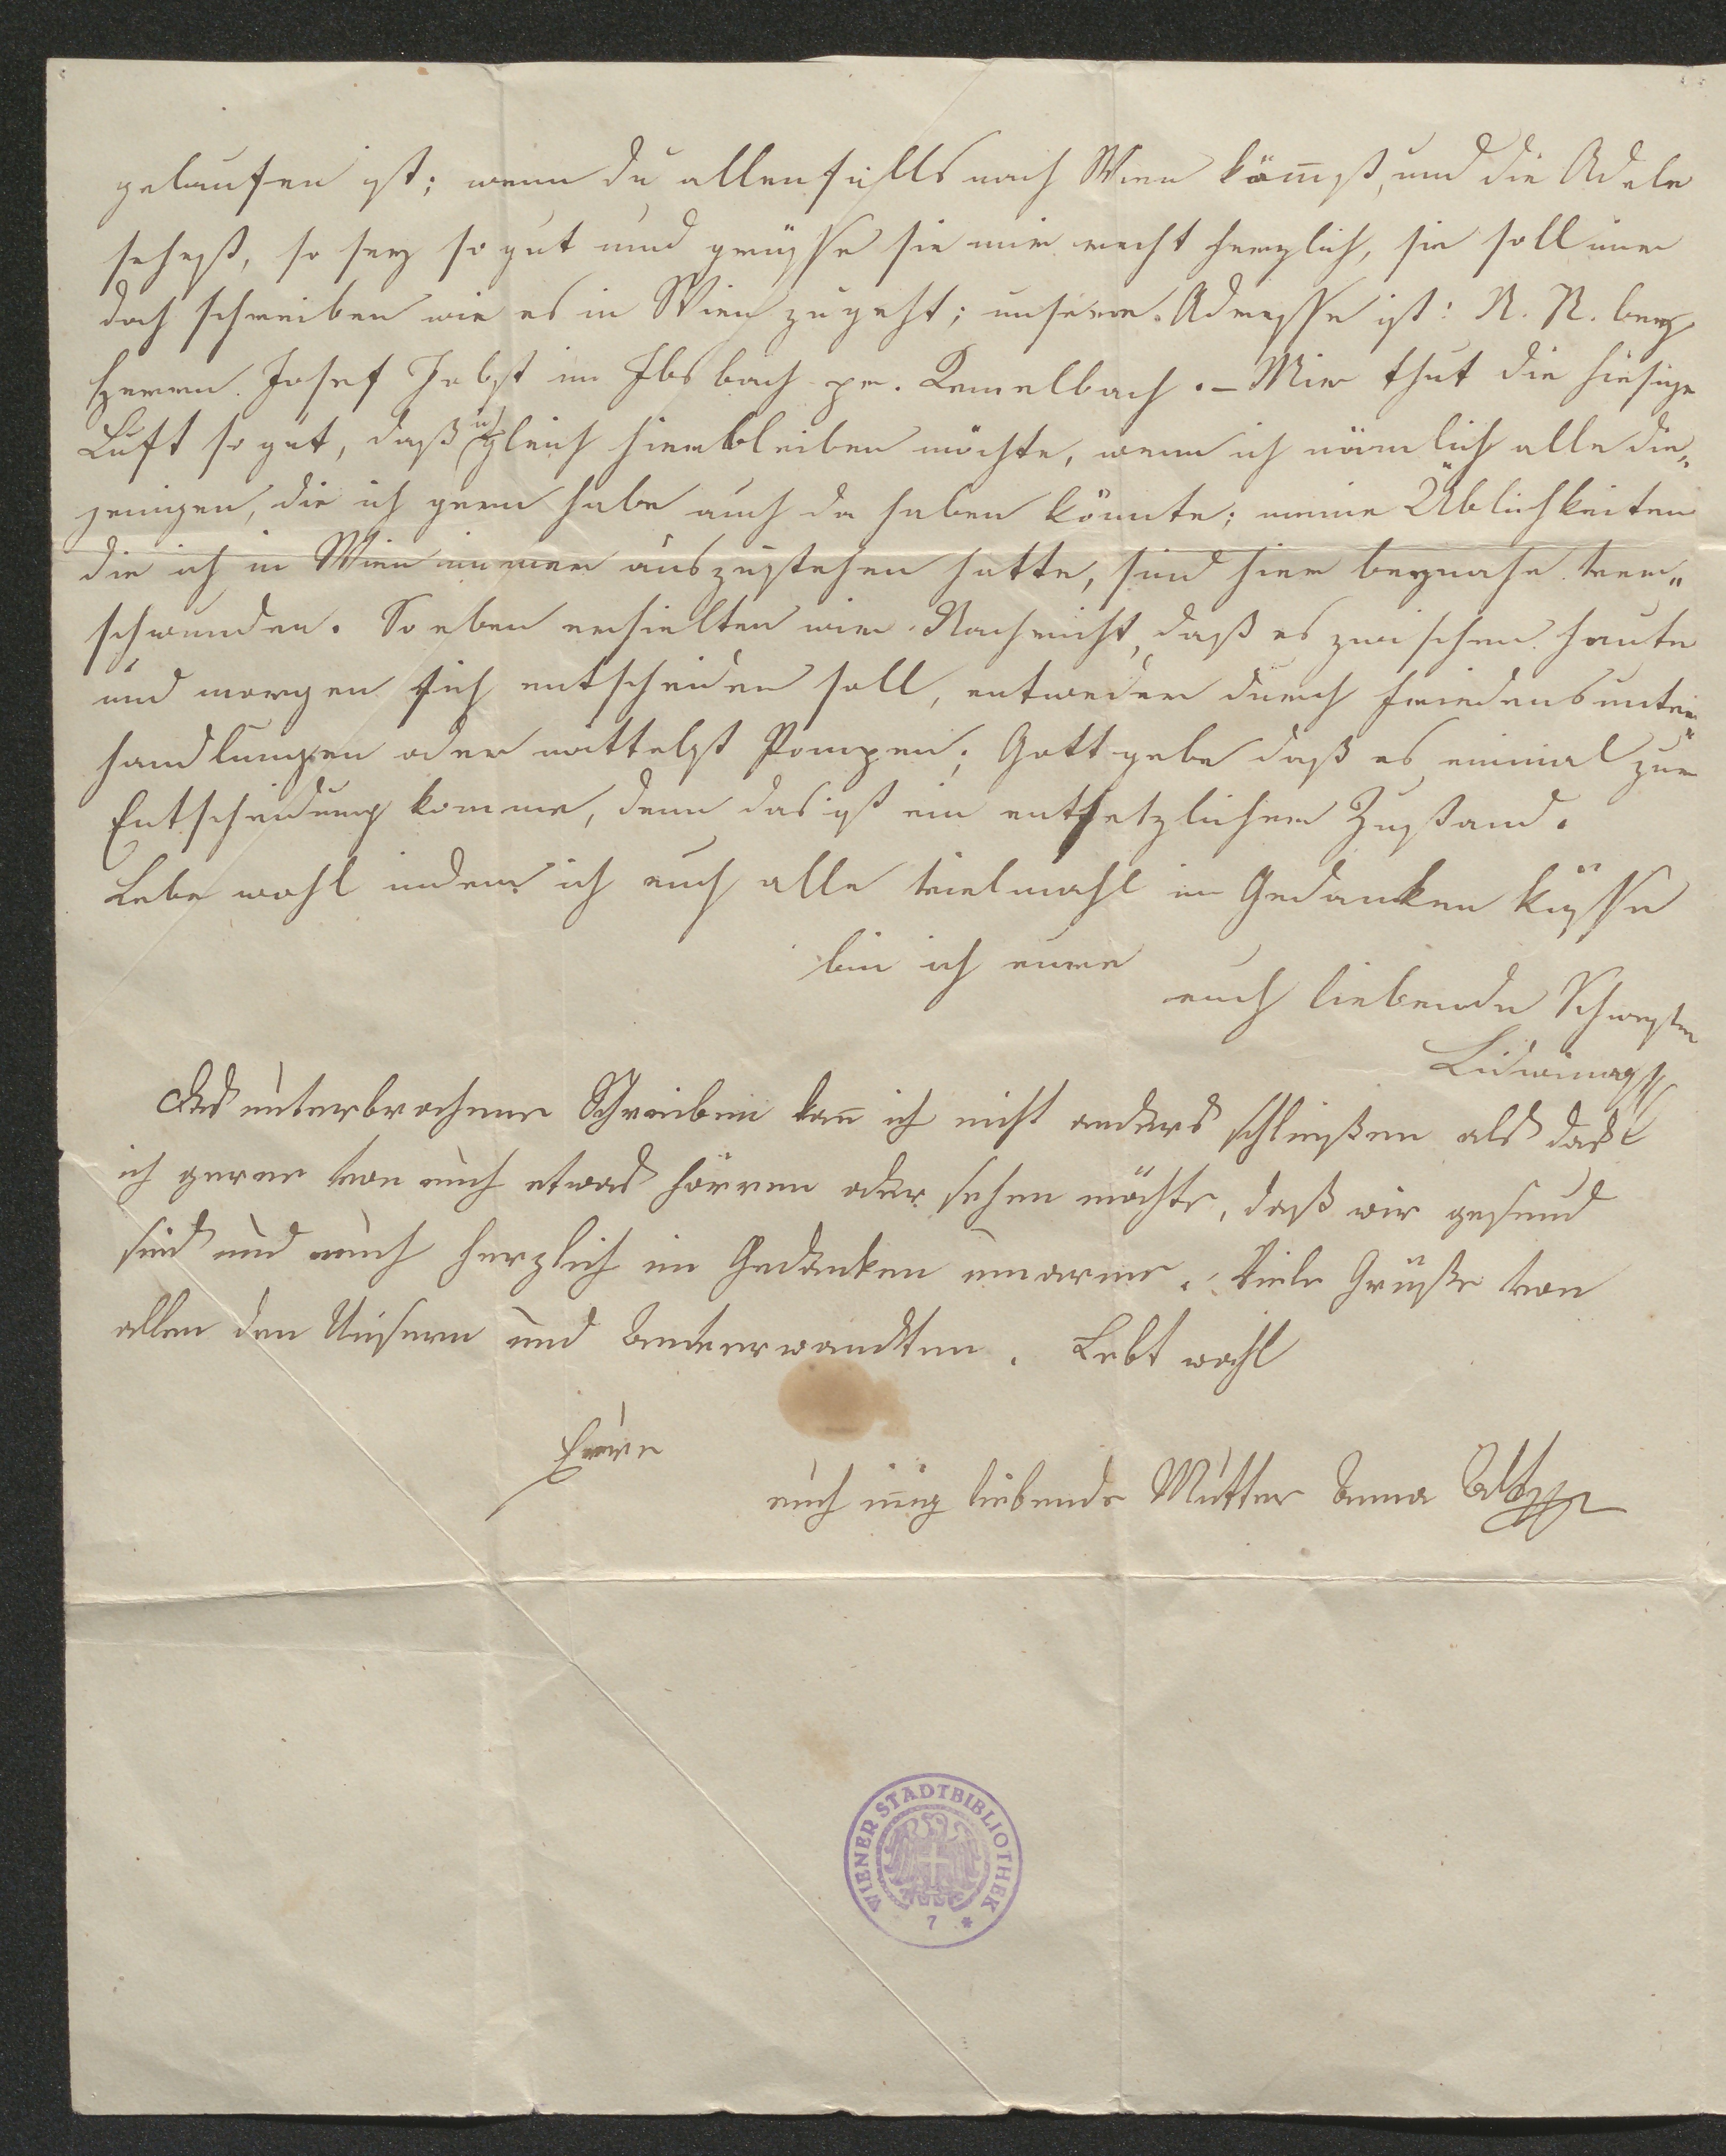 gelaufen ist; wenn du allenfalls nach Wien kom̅st, und die Adele
sehest, so sey so gut und grüsse sie mir recht herzlich, sie soll mir
doch schreiben wie es in Wien zugeht; unsere Adresse ist: N. N. bey
Herrn Josef Jebst in Ibsbach pr. Kemelbach. – Mir thut die hiesige
Luft so gut, daß ich gleich hierbleiben möchte, wenn ich nämlich alle die„
jenigen, die ich gern habe auch da haben könnte; meine Üblichkeiten
die ich in Wien immer auszustehen hatte, sind hier beynahe ver„
schwunden. So eben erhielten wir Nachricht, daß es zwischen heute
und morgen sich entscheiden soll, entweder durch Friedensunter„
handlungen oder mittelst Pompen; Gott gebe daß es einmal zur
Entscheidung komme, denn das ist ein entsetzlicher Zustand.
Lebe wohl indem ich euch alle vielmahl in Gedanken küsse
bin ich eure
euch liebende Schwester
Lidwina
Das unterbrochene Schreiben kan̅ ich nicht anders schließen als daß
ich gerne von euch etwas hören oder sehen möchte, daß wir gesund
sind und euch herzlich in Gedanken umarme. Viele Grüße von
allen den Unsern und Anverwandten. Lebt wohl
Eure
euch in̅ig liebende Mutter Anna
WIENER STADTBIBLIOTHEK
7 *